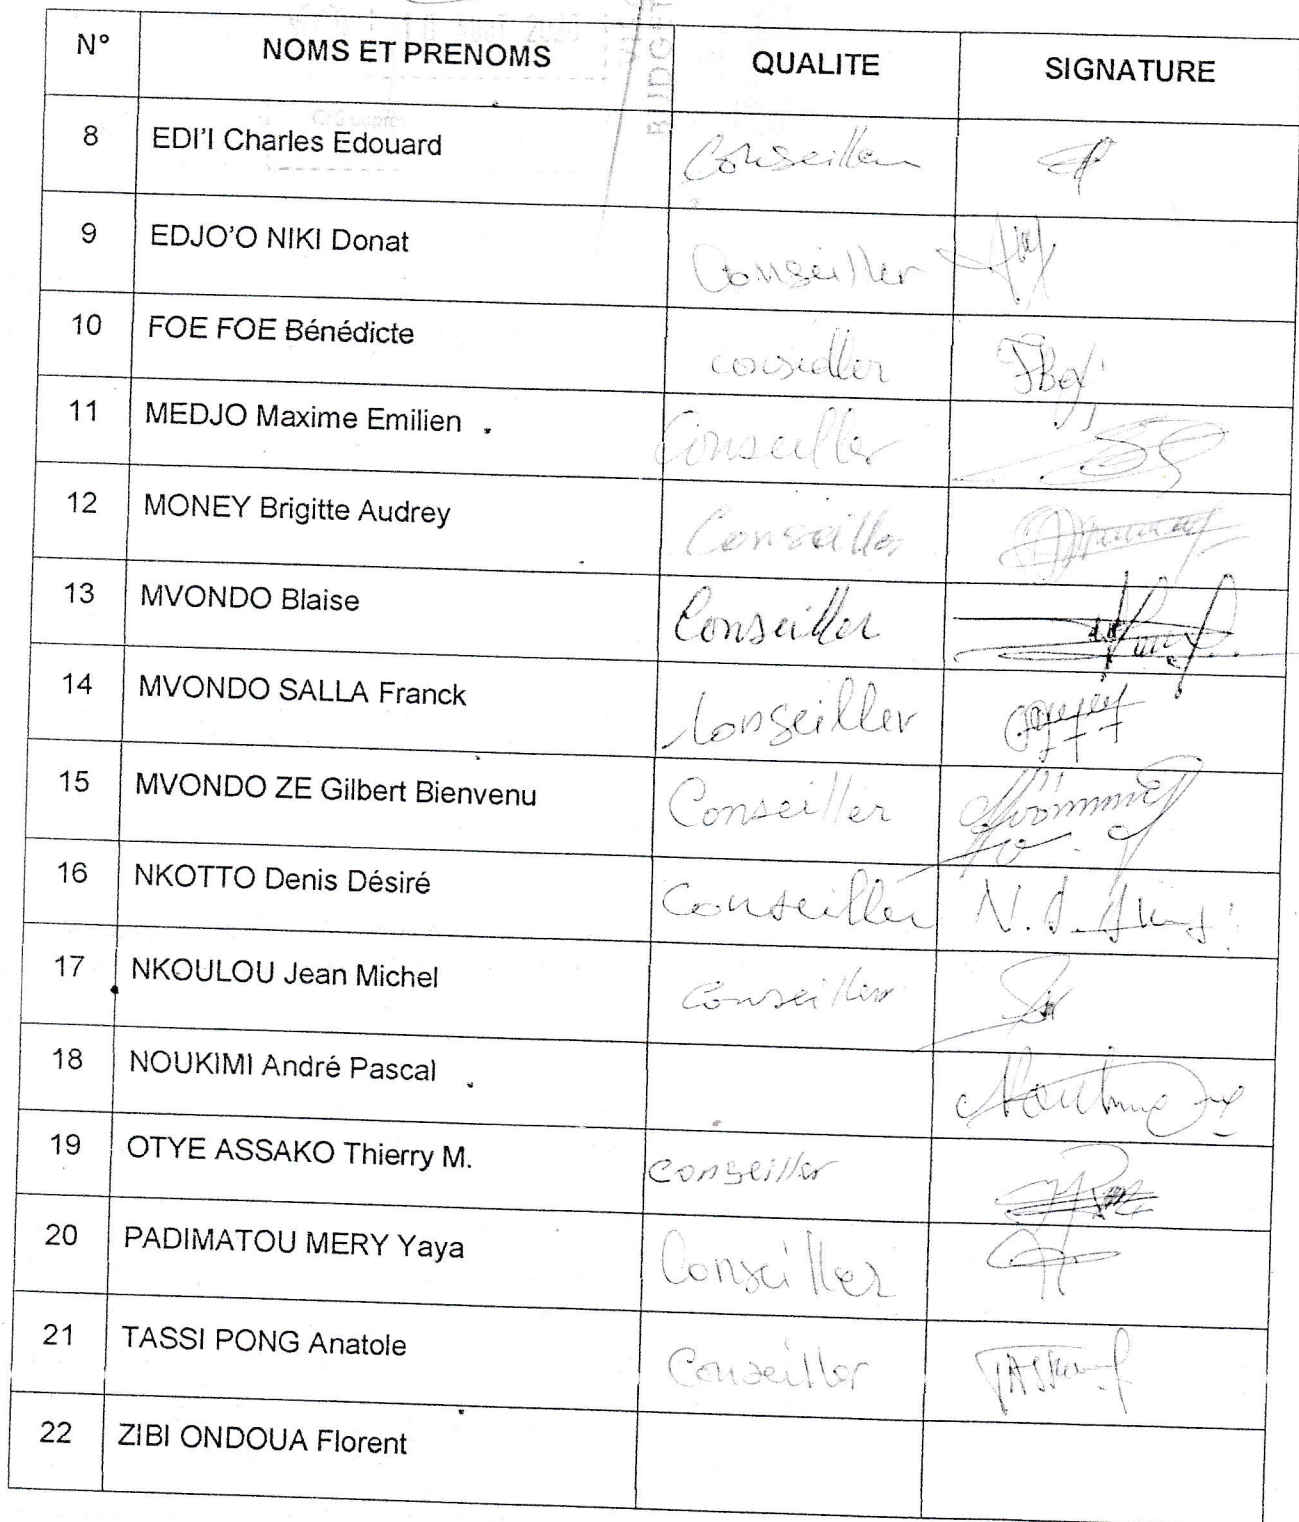 10 AOUT 2020
BUDGET
N° NOMS ET PRENOMS QUALITE SIGNATURE
8 EDI'I Charles Edouard Conseiller
9 EDJO'O NIKI Donat Conseiller
10 FOE FOE Bénédicte conseiller
11 MEDJO Maxime Emilien Conseiller
12 MONEY Brigitte Audrey Conseiller
13 MVONDO Blaise Conseiller
14 MVONDO SALLA Franck Conseiller
15 MVONDO ZE Gilbert Bienvenu Conseiller
16 NKOTTO Denis Désiré Conseiller
17 NKOULOU Jean Michel Conseiller
18 NOUKIMI André Pascal
19 OTYE ASSAKO Thierry M. conseiller
20 PADIMATOU MERY Yaya Conseiller
21 TASSI PONG Anatole Conseiller
22 ZIBI ONDOUA Florent